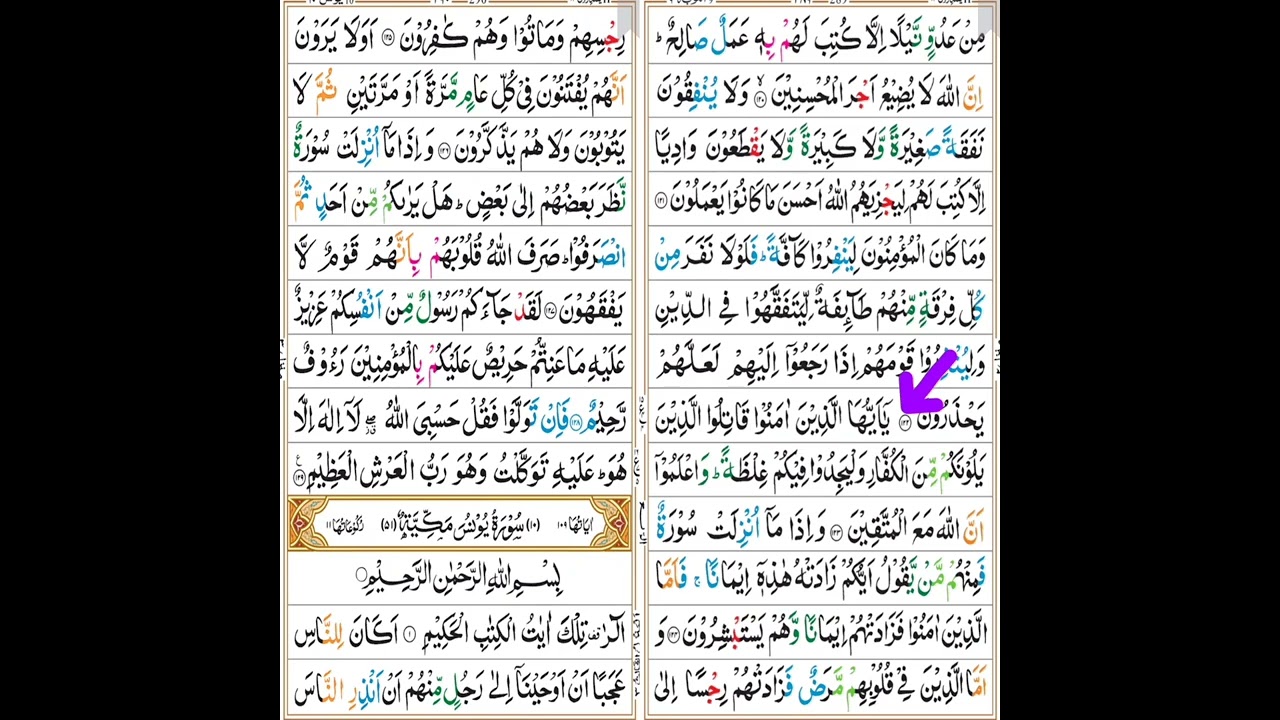 مِنْ عَدُوٍّ نَّيْلًا اِلَّا كُتِبَ لَهُمْ بِهٖ عَمَلٌ صَالِحٌ ؕ
اِنَّ اللّٰهَ لَا يُضِيْعُ اَجْرَ الْمُحْسِنِيْنَ ۙ﴿۱۲۰﴾ وَلَا يُنْفِقُوْنَ
نَفَقَةً صَغِيْرَةً وَّلَا كَبِيْرَةً وَّلَا يَقْطَعُوْنَ وَادِيًا
اِلَّا كُتِبَ لَهُمْ لِيَجْزِيَهُمُ اللّٰهُ اَحْسَنَ مَا كَانُوْا يَعْمَلُوْنَ ﴿۱۲۱﴾
وَمَا كَانَ الْمُؤْمِنُوْنَ لِيَنْفِرُوْا كَآفَّةً ؕ فَلَوْلَا نَفَرَ مِنْ
كُلِّ فِرْقَةٍ مِّنْهُمْ طَآئِفَةٌ لِّيَتَفَقَّهُوْا فِى الدِّيْنِ
قَوْمَهُمْ اِذَا رَجَعُوْۤا اِلَيْهِمْ لَعَلَّهُمْ
يَحْذَرُوْنَ ﴿۱۲۲﴾ يٰۤاَيُّهَا الَّذِيْنَ اٰمَنُوْا قَاتِلُوا الَّذِيْنَ
يَلُوْنَكُمْ مِّنَ الْكُفَّارِ وَلْيَجِدُوْا فِيْكُمْ غِلْظَةً ؕ وَاعْلَمُوْۤا
اَنَّ اللّٰهَ مَعَ الْمُتَّقِيْنَ ﴿۱۲۳﴾ وَاِذَا مَاۤ اُنْزِلَتْ سُوْرَةٌ
فَمِنْهُمْ مَّنْ يَّقُوْلُ اَيُّكُمْ زَادَتْهُ هٰذِهٖۤ اِيْمَانًا ۚ فَاَمَّا
الَّذِيْنَ اٰمَنُوْا فَزَادَتْهُمْ اِيْمَانًا وَّهُمْ يَسْتَبْشِرُوْنَ ﴿۱۲۴﴾ وَ
اَمَّا الَّذِيْنَ فِىْ قُلُوْبِهِمْ مَّرَضٌ فَزَادَتْهُمْ رِجْسًا اِلٰى
رِجْسِهِمْ وَمَاتُوْا وَهُمْ كٰفِرُوْنَ ﴿۱۲۵﴾ اَوَلَا يَرَوْنَ
اَنَّهُمْ يُفْتَنُوْنَ فِىْ كُلِّ عَامٍ مَّرَّةً اَوْ مَرَّتَيْنِ ثُمَّ لَا
يَتُوْبُوْنَ وَلَا هُمْ يَذَّكَّرُوْنَ ﴿۱۲۶﴾ وَاِذَا مَاۤ اُنْزِلَتْ سُوْرَةٌ
نَّظَرَ بَعْضُهُمْ اِلٰى بَعْضٍ ؕ هَلْ يَرٰىكُمْ مِّنْ اَحَدٍ ثُمَّ
انْصَرَفُوْا ؕ صَرَفَ اللّٰهُ قُلُوْبَهُمْ بِاَنَّهُمْ قَوْمٌ لَّا
يَفْقَهُوْنَ ﴿۱۲۷﴾ لَقَدْ جَآءَكُمْ رَسُوْلٌ مِّنْ اَنْفُسِكُمْ عَزِيْزٌ
عَلَيْهِ مَا عَنِتُّمْ حَرِيْصٌ عَلَيْكُمْ بِالْمُؤْمِنِيْنَ رَءُوْفٌ
رَّحِيْمٌ ﴿۱۲۸﴾ فَاِنْ تَوَلَّوْا فَقُلْ حَسْبِىَ اللّٰهُ لَاۤ اِلٰهَ اِلَّا
هُوَ ؕ عَلَيْهِ تَوَكَّلْتُ وَهُوَ رَبُّ الْعَرْشِ الْعَظِيْمِ ﴿۱۲۹﴾
اٰيَاتُهَا ۱۰۹ (۱۰) سُوْرَةُ يُوْنُسَ مَكِّيَّةٌ (۵۱) رُكُوْعَاتُهَا ۱۱
بِسْمِ اللّٰهِ الرَّحْمٰنِ الرَّحِيْمِ
الٓرٰ تِلْكَ اٰيٰتُ الْكِتٰبِ الْحَكِيْمِ ﴿۱﴾ اَكَانَ لِلنَّاسِ
عَجَبًا اَنْ اَوْحَيْنَاۤ اِلٰى رَجُلٍ مِّنْهُمْ اَنْ اَنْذِرِ النَّاسَ